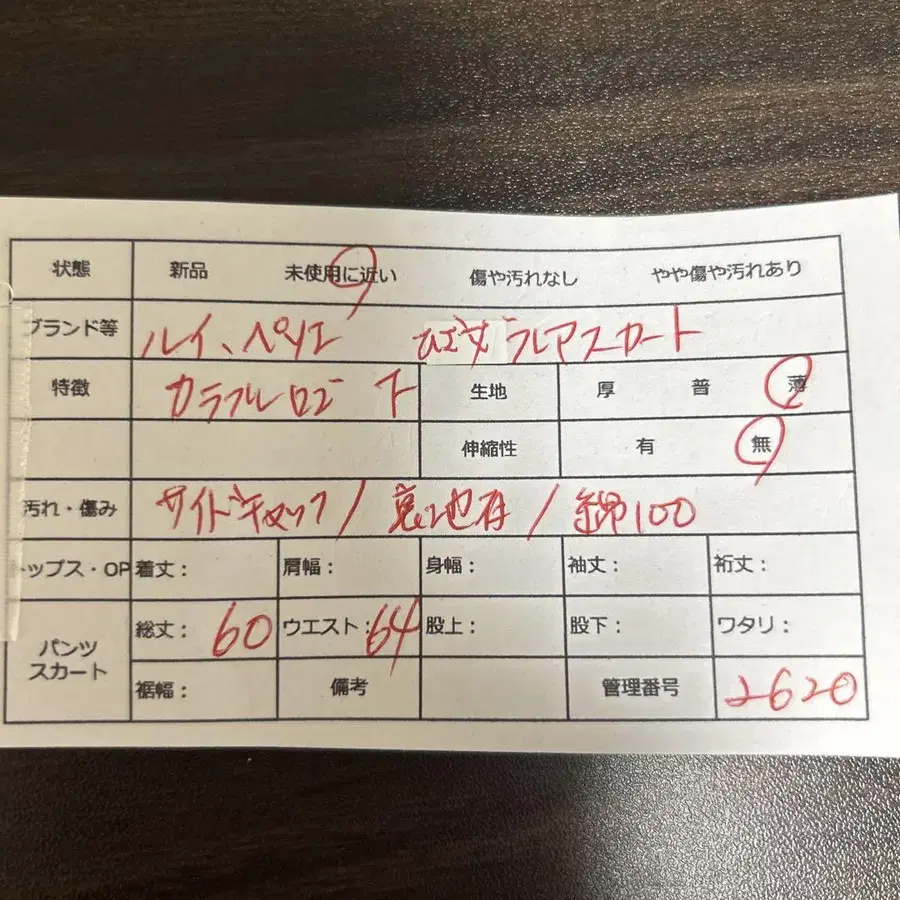 状態 新品 未使用に近い 傷や汚れなし やや傷や汚れあり
ブランド等 ルイ、ペリエ ひざ丈 フレアスカート
特徴 カラフルロゴ 生地 厚 普 薄
伸縮性 有 無
汚れ・傷み サイドチャック / 裏地有 / 綿100
トップス・OP 着丈: 肩幅: 身幅: 袖丈: 裄丈:
パンツ スカート 総丈: 60 ウエスト: 64 股上: 股下: ワタリ:
裾幅: 備考 管理番号 2620